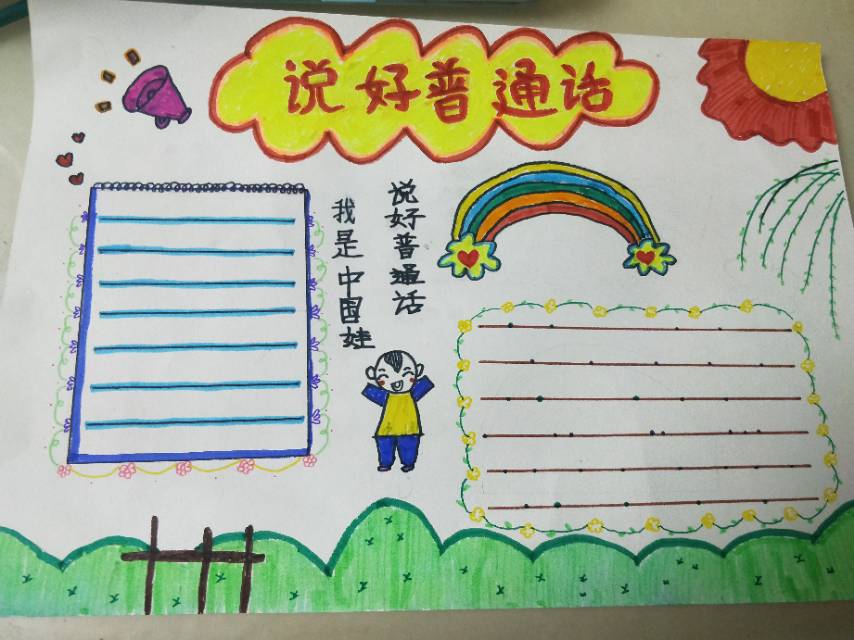 说好普通话
说好普通话
我是中国娃